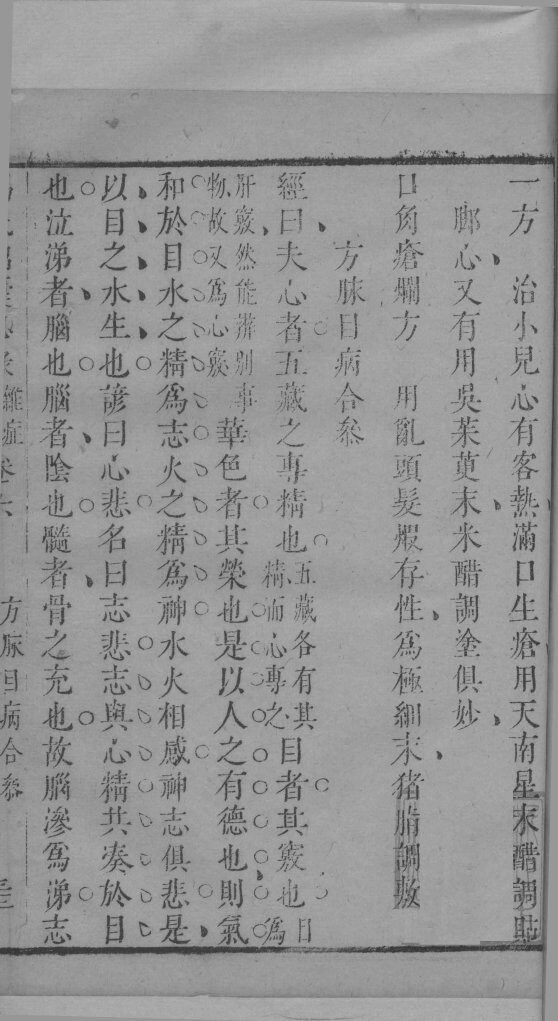 一方　治小兒心有客熱滿口生瘡用天南星末醋調貼
脚心又有用吳茱萸末米醋調塗俱妙
口角瘡爛方　用亂頭髮煅存性爲極細末猪脂調敷
方脉目病合叅
經曰夫心者五藏之專精也五藏各有其精而心專之目者其竅也目爲
肝竅然能辨别事物故又爲心竅華色者其榮也是以人之有德也則氣
和於目水之精爲志火之精爲神水火相感神志俱悲是
以目之水生也諺曰心悲名曰志悲志與心精共凑於目
也泣涕者腦也腦者陰也髓者骨之充也故腦滲爲涕志
雜症卷六　方脉目病合叅